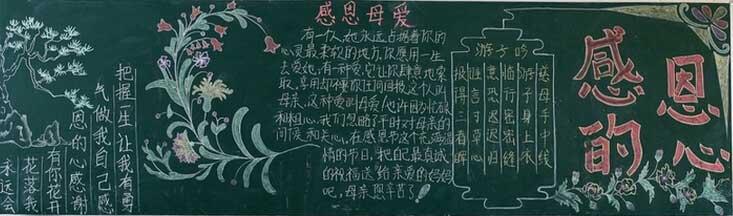 把握一生让我有
气做我自己感
恩的心感谢
有你花开
花落我
永远会
感恩母爱
有一个人,她永远占据着你的
心灵最柔软的地方,你愿用一生
去爱她,有一种爱,它让你肆意地索
取、享用却不要你任何回报,这个人叫
母亲,这种爱叫母爱!也许因为忙碌
和粗心,我们忽略了平时对母亲的
问候和关心,在感恩节这个充满温
情的节日,把最真诚
的祝福送给亲爱的妈妈
吧,母亲您辛苦了!
游子吟
慈母手中线
游子身上衣
临行密密缝
意恐迟迟归
谁言寸草心
报得三春晖
感恩
的心